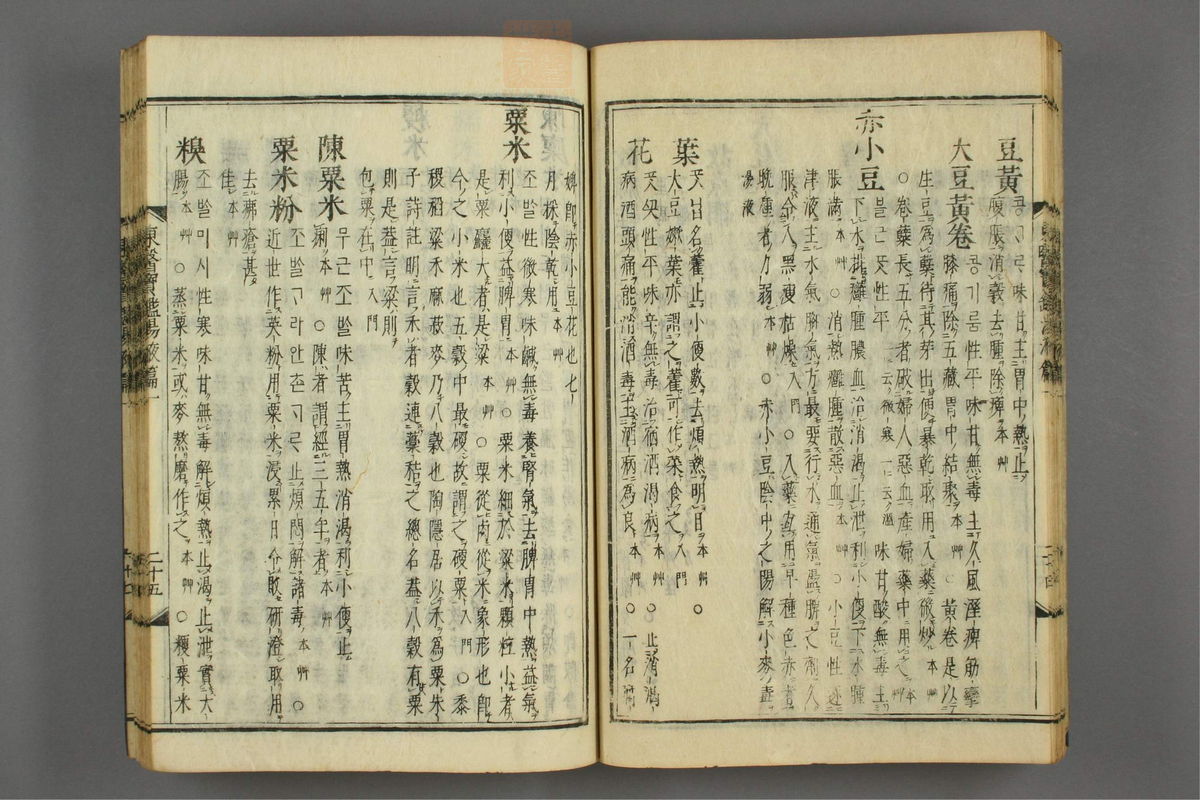 豆黃 콩ㄱㄹ味甘主胃中熱止
腹脹消穀去腫除痺本艸
大豆黃卷 콩기룸性平味甘無毒主久風溼痺筋攣
膝痛除五藏胃中結聚本艸○黃卷是以
生豆爲蘖待其芽出便暴乾取用入藥微炒本艸
○卷蘖長五分者破婦人惡血產婦藥中用之本艸
赤小豆 블근ᄑᆞᆺ性平一云微寒一云溫味甘酸無毒主
下水排癰腫膿血治消渴止泄利小便下水腫
脹滿本艸○消熱癰腫散惡血本艸○小豆性逐
津液主水氣脚氣方最要行水通氣盪脾之劑久
服令人黑瘦枯燥入門○入藥宜用早種色赤者
晩種者力弱本艸○赤小豆陰中之陽解小麥毒
湯液
葉 ᄑᆞᆺ닙名藿止小便數去煩熱明目本艸○
大豆嫩葉亦謂之藿可作菜食之入門
花 ᄑᆞᆺ곳性平味辛無毒治宿酒渴病本艸○止消渴
病酒頭痛能消酒毒主酒病爲良本艸○一名腐
婢卽赤小豆花也七
月採陰乾用本艸
粟米 조ᄡᆞᆯ性微寒味鹹無毒養腎氣去脾胃中熱益氣
利小便益脾胃本艸○粟米細於粱米顆粒小者
是粟麤大者是粱本艸○粟從肉從米象形也卽
今之小米也五穀中最硬故謂之硬粟入門○黍
稷稻粱禾麻菽麥乃八穀也陶隱居以禾爲粟朱
子詩註明言禾者穀連藁秸之總名蓋八穀有粟
則是蓋言粱則
包粟在中入門
陳粟米 무근조ᄡᆞᆯ味苦主胃熱消渴利小便止
痢本艸○陳者謂經三五年者本艸
粟米粉 조ᄡᆞᆯㄱ라안촌ㄱㄹ止煩悶解諸毒本艸○
近世作英粉用粟米浸累日令敗硏澄取用
去疿瘡甚
佳本艸
糗 조ᄡᆞᆯ미시性寒味甘無毒解煩熱止渴止泄實大
腸本艸○蒸粟米或麥熬磨作之本艸○糗粟米
東醫寶鑑湯液篇一
二十五